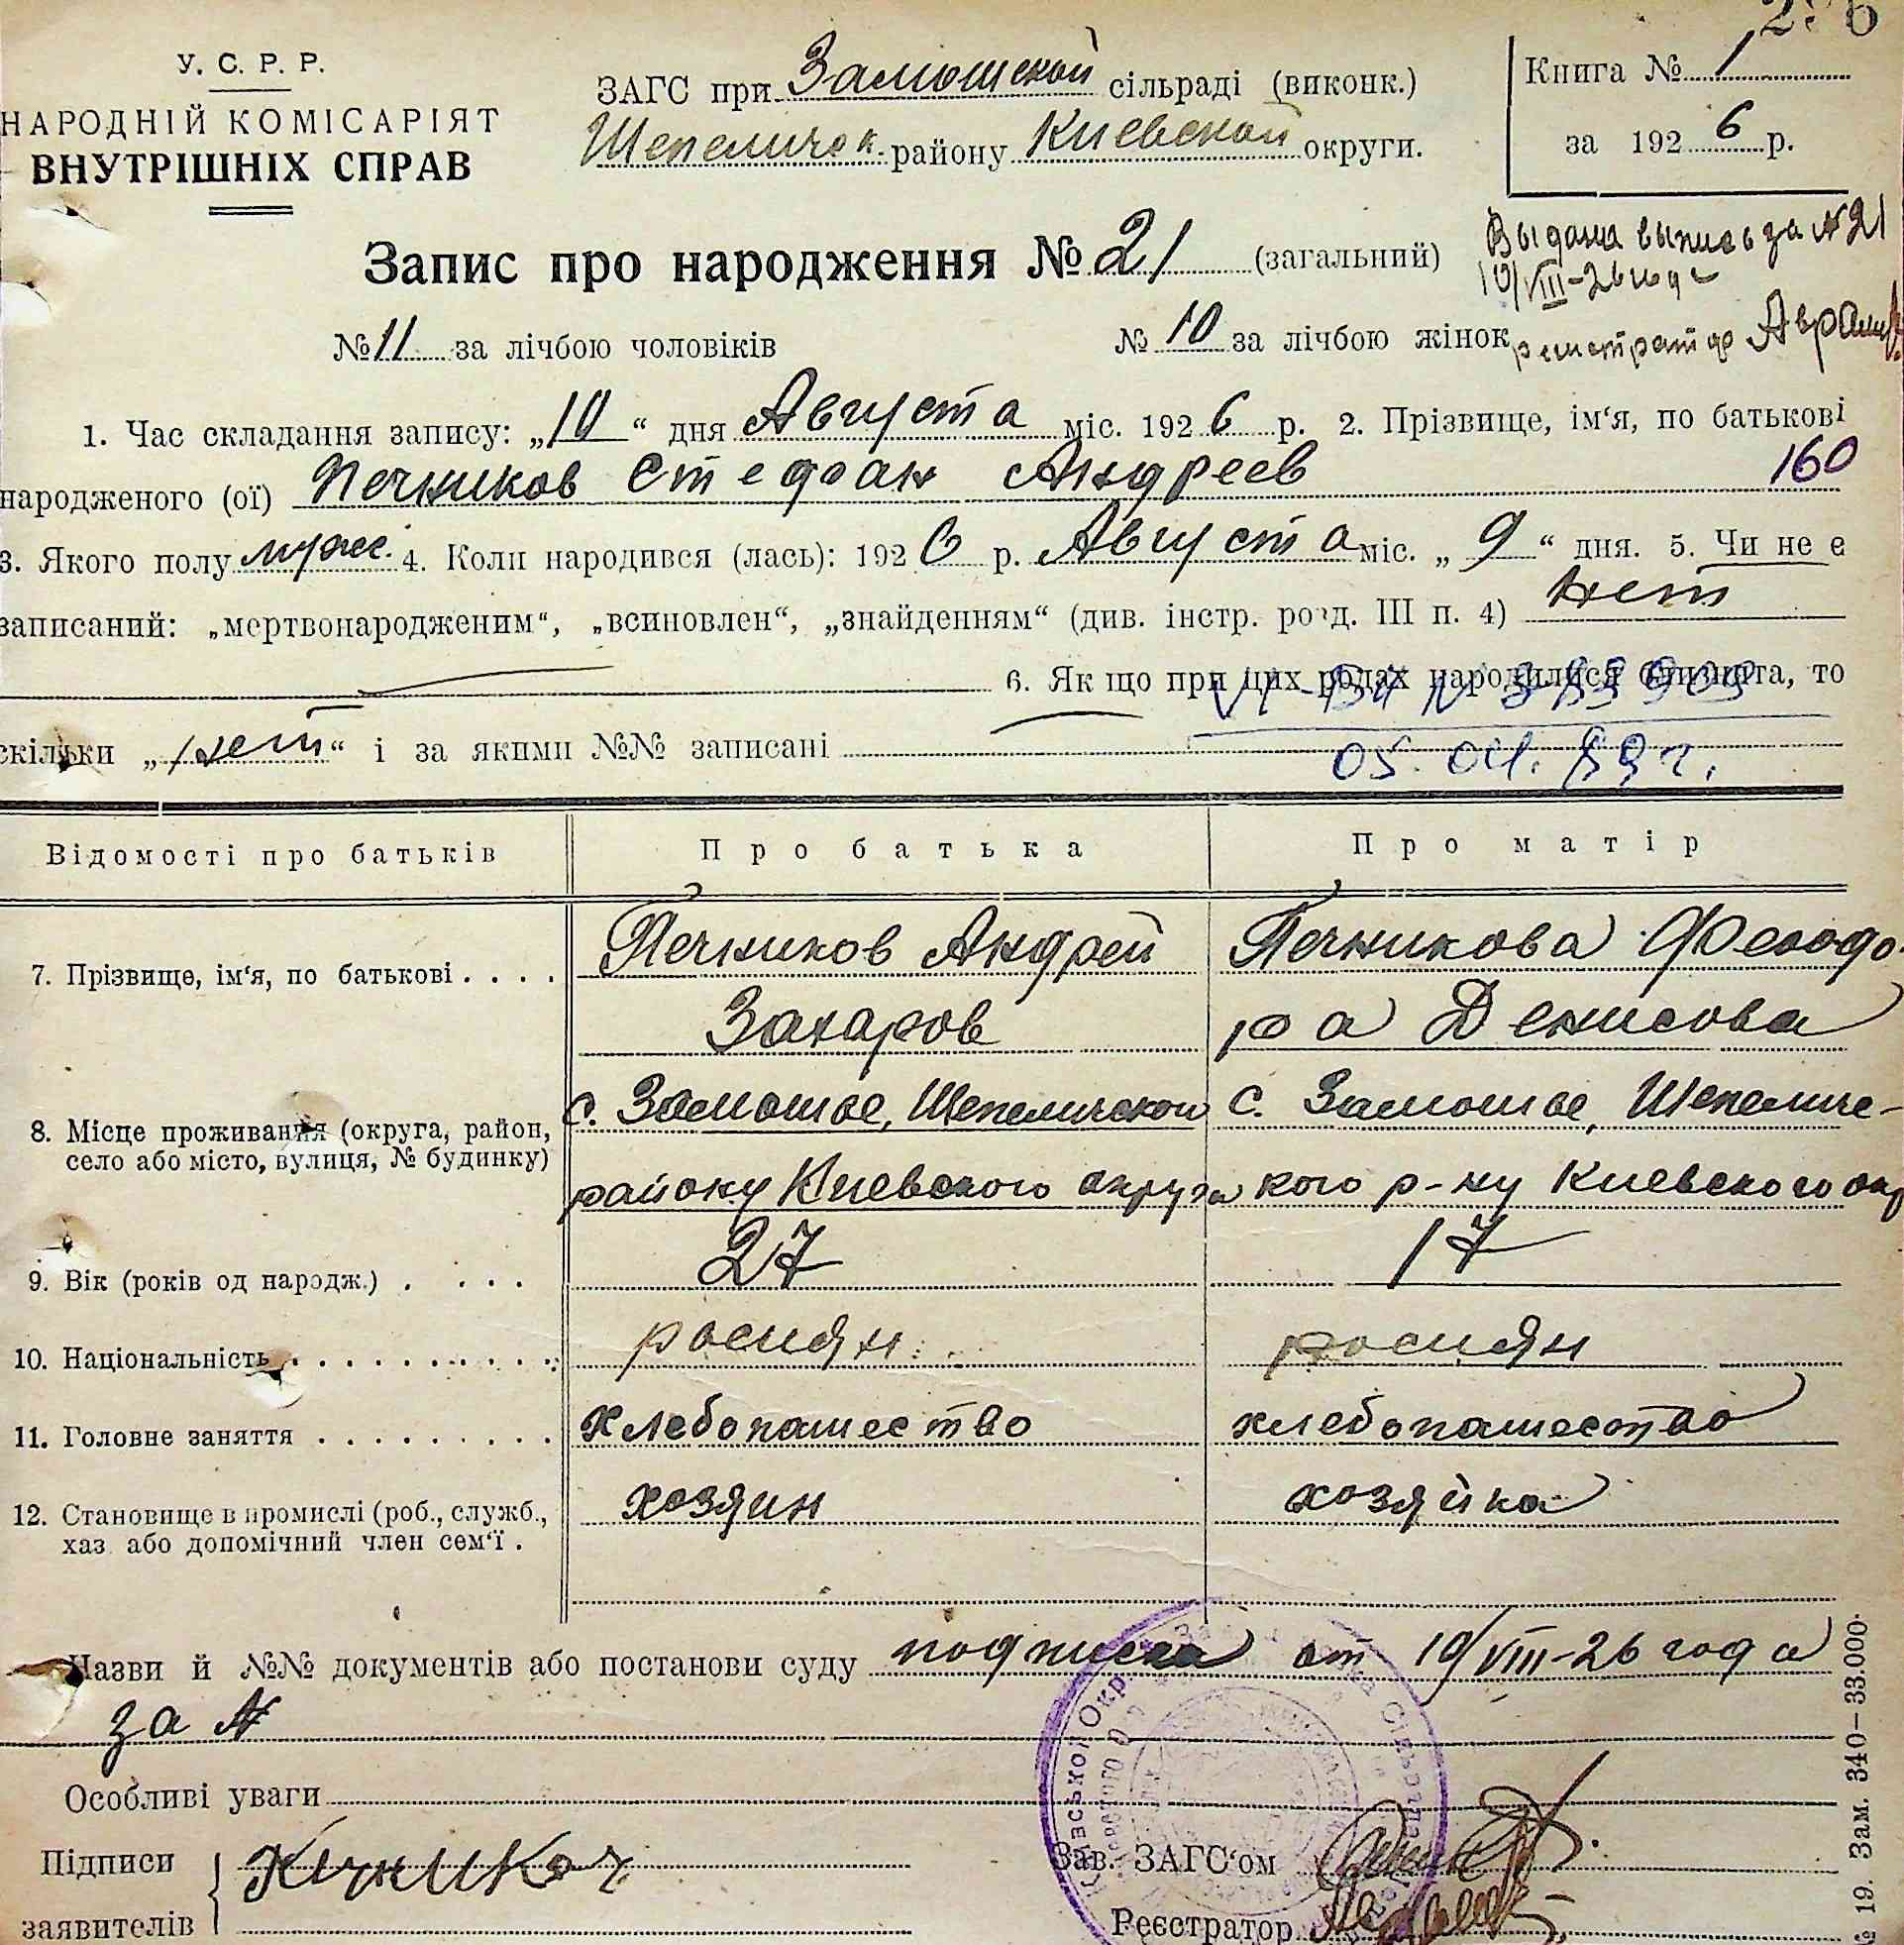 У. С. Р. Р.
НАРОДНІЙ КОМІСАРІЯТ
ВНУТРІШНІХ СПРАВ
ЗАГС при Замошской сільраді (виконк.)
Шепеличск. району Киевской округи.
Книга № 1
за 1926 р.
Запис про народження № 21 (загальний)
Выдана выпись за № 21
10/VIII-26 года
регистратор
№ 11 за лічбою чоловіків № 10 за лічбою жінок
1. Час складання запису: „10“ дня Августа міс. 1926 р. 2. Прізвище, ім‘я, по батькові
народженого (ої) Печников Стефан Андреев 160
3. Якого полу мужс. 4. Коли народився (лась): 1926 р. Августа міс. „9“ дня. 5. Чи не є
записаний: „мертвонародженим“, „всиновлен“, „знайденням“ (див. інстр. розд. III п. 4) нет
6. Як що при цих родах народилися близнята, то
скільки „нет“ і за якими №№ записані
05. 04. 89 г.
Відомості про батьків Про батька Про матір
7. Прізвище, ім‘я, по батькові . . . . Печников Андрей Печникова Феодо
Захаров ра Денисова
8. Місце проживання (округа, район, с. Замошье, Шепеличской с. Замошье, Шепеличс-
село або місто, вулиця, № будинку)
району Киевского округа кого р-ну Киевского окр
9. Вік (років од народж.) . . . . 27 17
10. Національність . . . . . . . . . . росиян. росиян
11. Головне заняття . . . . . . . . . хлебопашество хлебопашество
12. Становище в промислі (роб., служб., хозяин хозяйка
хаз. або допомічний член сем‘ї .
Назви й №№ документів або постанови суду подписка от 10/VIII-26 года
за №
Особливі уваги
Підписи
заявителів
Зав. ЗАГС‘ом
Реєстратор
№ 19. Зам. 340—33.000.